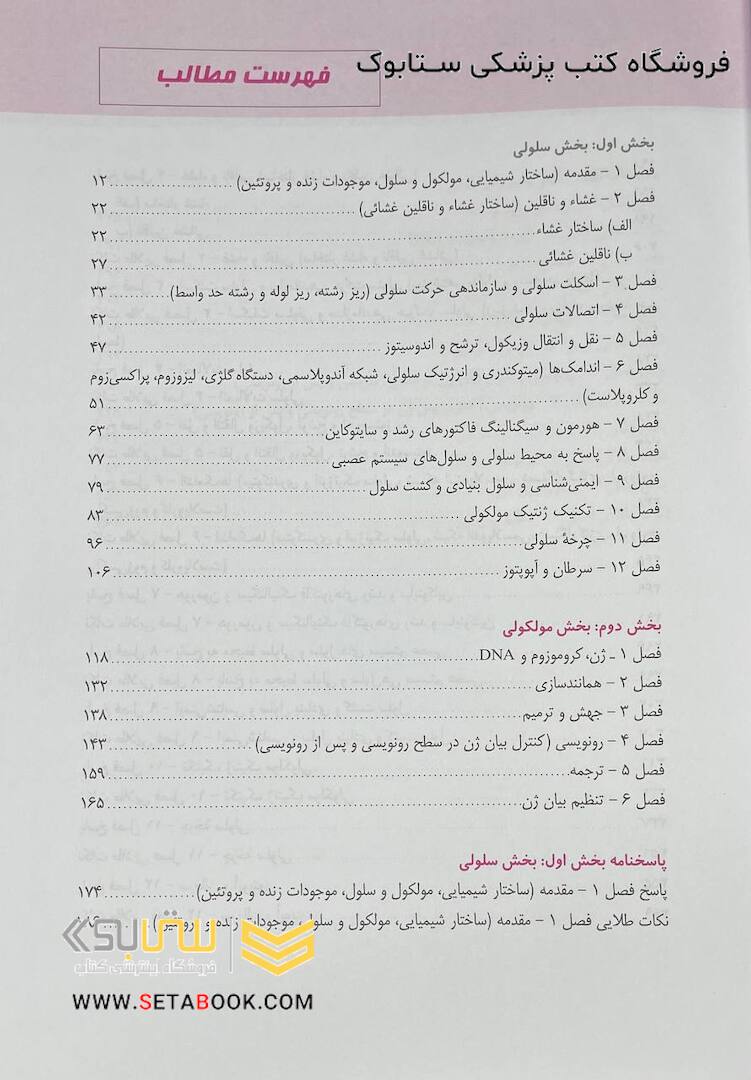 فروشگاه کتب پزشکی ستابوک
فهرست مطالب
بخش اول: بخش سلولی
فصل ۱ - مقدمه (ساختار شیمیایی، مولکول و سلول، موجودات زنده و پروتئین) ۱۲
فصل ۲ - غشاء و ناقلین (ساختار غشاء و ناقلین غشائی) ۲۲
الف) ساختار غشاء ۲۲
ب) ناقلین غشائی ۲۷
فصل ۳ - اسکلت سلولی و سازماندهی حرکت سلولی (ریز رشته، ریز لوله و رشته حد واسط) ۳۳
فصل ۴ - اتصالات سلولی ۴۲
فصل ۵ - نقل و انتقال وزیکول، ترشح و اندوسیتوز ۴۷
فصل ۶ - اندامک‌ها (میتوکندری و انرژتیک سلولی، شبکه آندوپلاسمی، دستگاه گلژی، لیزوزوم، پراکسی‌زوم
و کلروپلاست) ۵۱
فصل ۷ - هورمون و سیگنالینگ فاکتورهای رشد و سایتوکاین ۶۳
فصل ۸ - پاسخ به محیط سلولی و سلول‌های سیستم عصبی ۷۷
فصل ۹ - ایمنی‌شناسی و سلول بنیادی و کشت سلول ۷۹
فصل ۱۰ - تکنیک ژنتیک مولکولی ۸۳
فصل ۱۱ - چرخهٔ سلولی ۹۶
فصل ۱۲ - سرطان و آپوپتوز ۱۰۶
بخش دوم: بخش مولکولی
فصل ۱ ـ ژن، کروموزوم و DNA ۱۱۸
فصل ۲ - همانندسازی ۱۳۲
فصل ۳ - جهش و ترمیم ۱۳۸
فصل ۴ - رونویسی (کنترل بیان ژن در سطح رونویسی و پس از رونویسی) ۱۴۳
فصل ۵ - ترجمه ۱۵۹
فصل ۶ - تنظیم بیان ژن ۱۶۵
پاسخنامه بخش اول: بخش سلولی
پاسخ فصل ۱ - مقدمه (ساختار شیمیایی، مولکول و سلول، موجودات زنده و پروتئین) ۱۷۴
نکات طلایی فصل ۱ - مقدمه (ساختار شیمیایی، مولکول و سلول، موجودات زنده و پروتئین)
ستابوک
فروشگاه اینترنتی کتاب
WWW.SETABOOK.COM